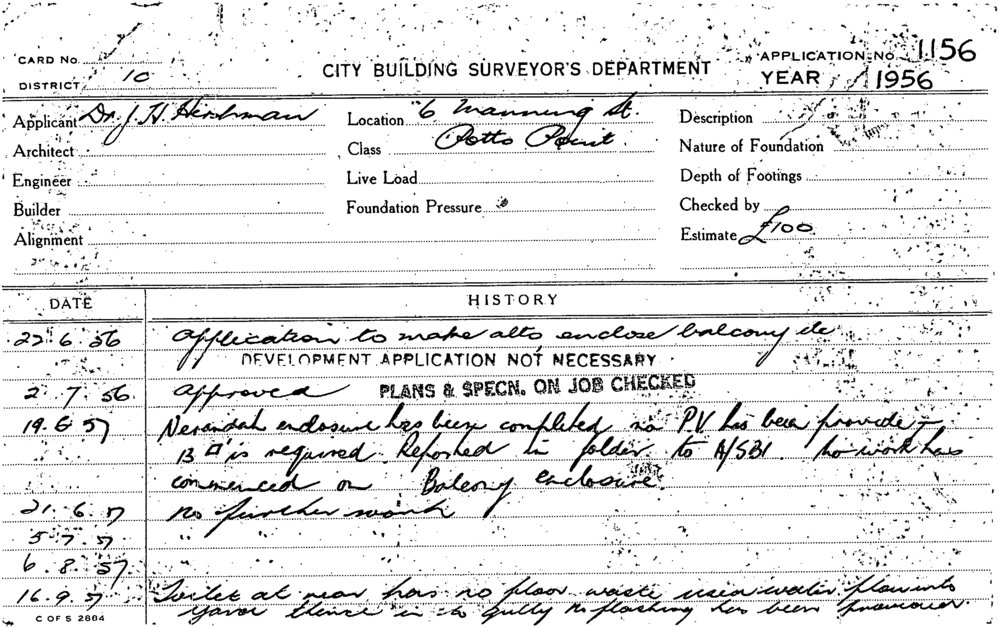 CARD No.
DISTRICT 10
CITY BUILDING SURVEYOR'S DEPARTMENT
APPLICATION No. 1156
YEAR 1956
Applicant Dr. J. H. Hershman
Location 6 Manning St.
Potts Point.
Description
Architect
Class
Nature of Foundation
Engineer
Live Load
Depth of Footings
Builder
Foundation Pressure
Checked by
Alignment
Estimate £100
DATE HISTORY
22. 6. 56 Application to make alts enclose balcony etc
DEVELOPMENT APPLICATION NOT NECESSARY
2. 7. 56. Approved PLANS & SPECN. ON JOB CHECKED
19. 6 57 Verandah enclosure has been completed no PV has been provide
13 is required. Reported in folder to A/SBI. no work has
commenced on Balcony enclosure.
21. 6. 57 no further work
5. 7. 57 " " "
6. 8. 57 " " "
16. 9. 57 Toilet at rear has no floor waste used water flows into
yard thence in to gully no flashing has been provided.
C OF S 2884